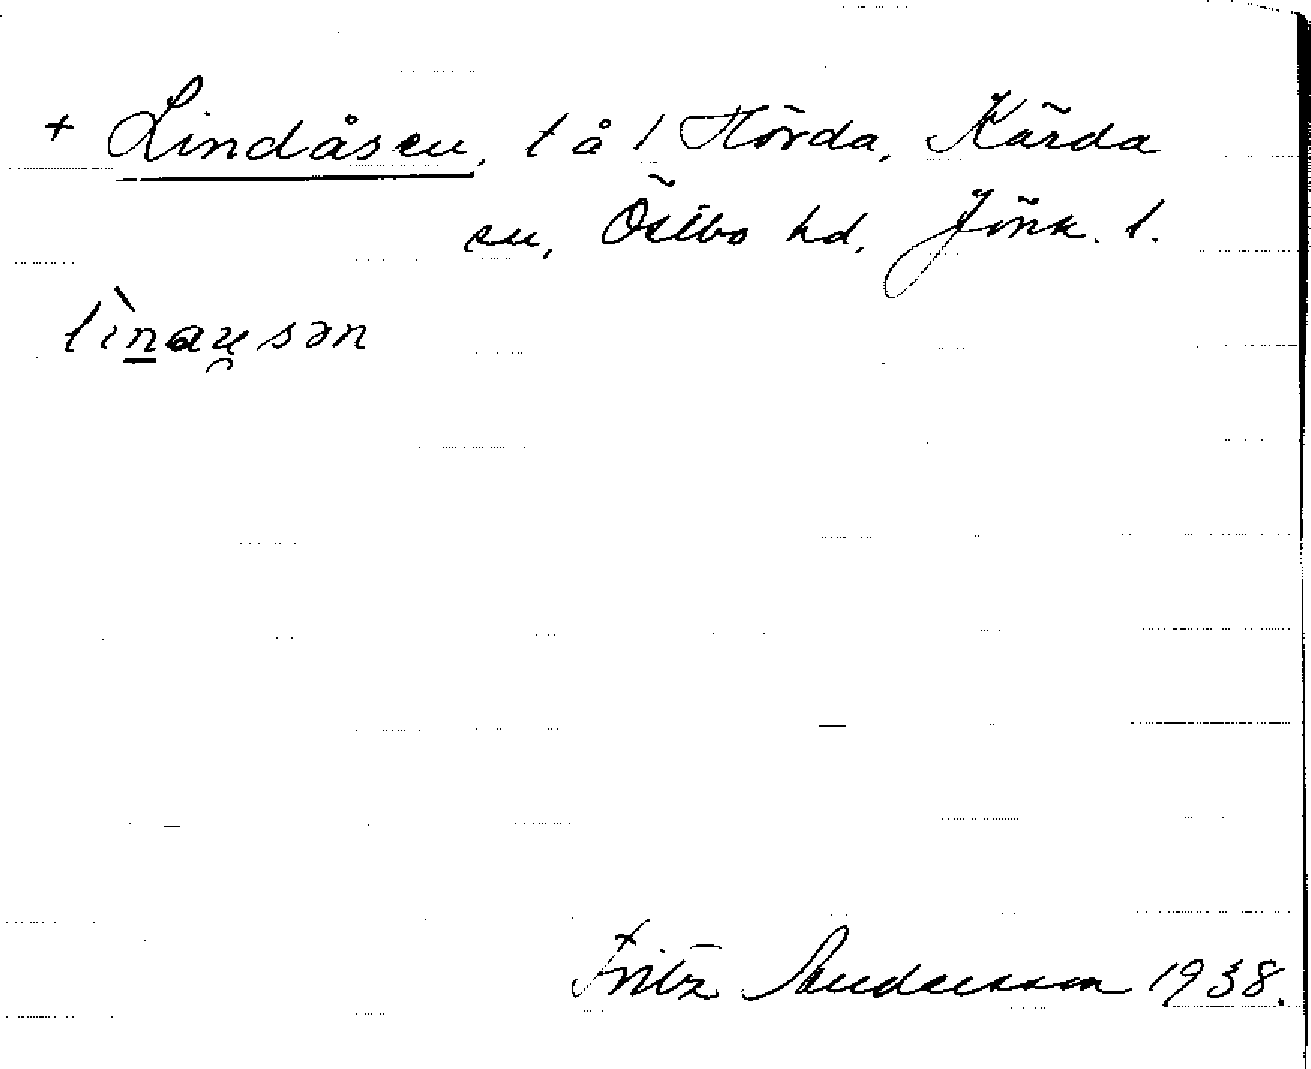 + Lindåsen, t å 1 Hörda, Kärda
sn, Östbo hd, Jönk. l.
lìnau̯sən
Fritz Andersson 1938.